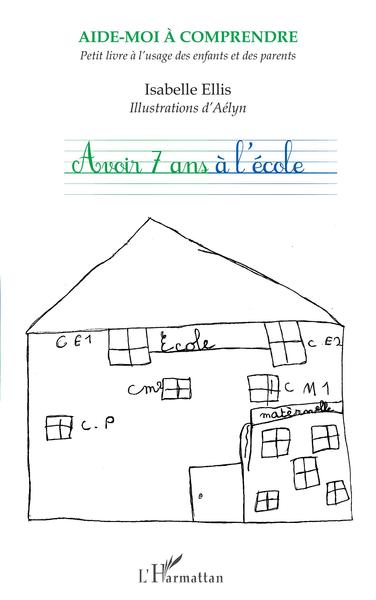 AIDE-MOI À COMPRENDRE
Petit livre à l'usage des enfants et des parents
Isabelle Ellis
Illustrations d'Aélyn
Avoir 7 ans à l'école
C E1
École
C E2
Cm2
C M1
maternelle
C.P
L'Harmattan